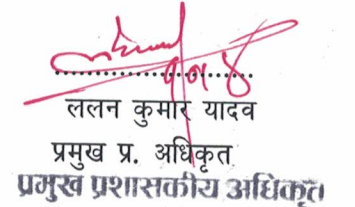 ललन कुमार यादव
प्रमुख प्र. अधिकृत
प्रमुख प्रशासकीय अधिकृत